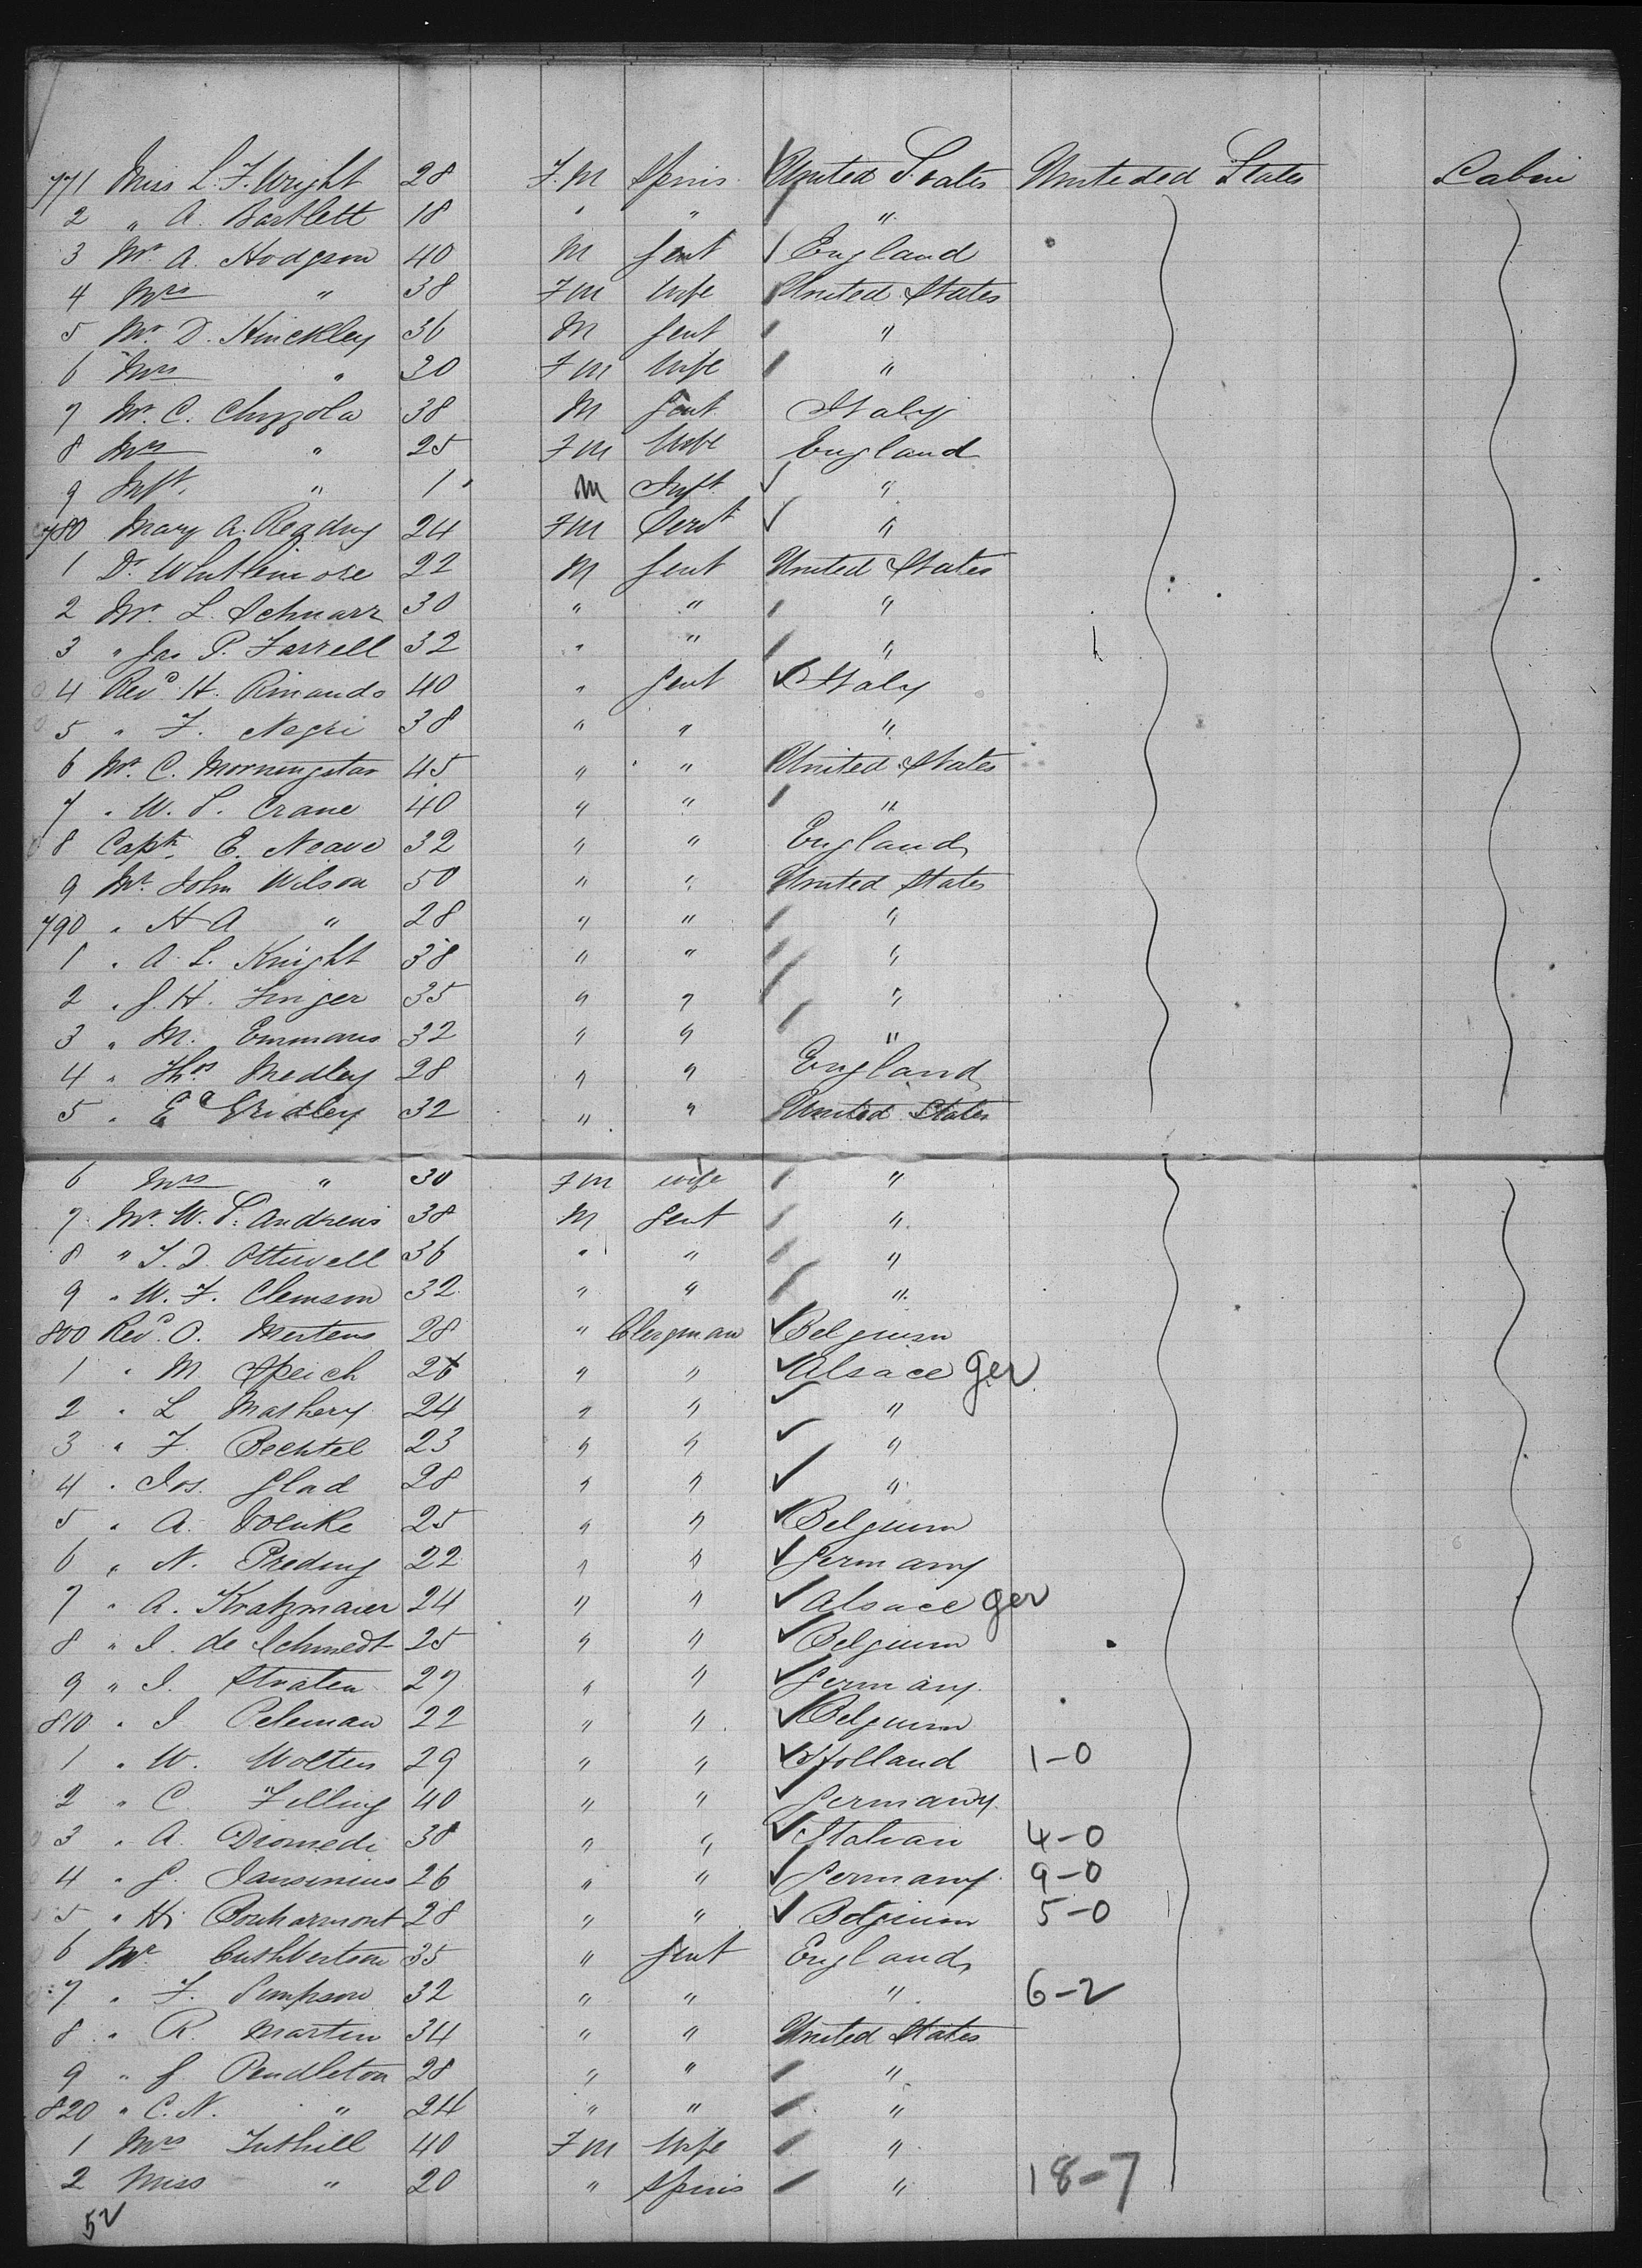 771 Miss L. F. Wright 28 F.M Spins United States Uniteded States Cabin
2 " A. Bartlett 18 " " "
3 Mr. A. Hodgson 40 M Gent England
4 Mrs " 38 F M Wife United States
5 Mr. D. Hinckley 36 M Gent "
6 Mrs " 30 F M Wife "
7 Mr. C. Chizzola 38 M Gent Italy
8 Mrs " 25 F M Wife England
9 Inft. " 1 M Inft "
780 Mary A. Reading 24 F M Servt "
1 Dr. Whittemore 22 M Gent United States
2 Mr. L. Schnarr 30 " " "
3 " Jas P. Farrell 32 " " "
4 Revd H. Rinando 40 " Gent Italy
5 " F. Negri 38 " " "
6 Mr. C. Morningstar 45 " " United States
7 " W. S. Crane 40 " " "
8 Capt. E. Neave 32 " " England
9 Mr. John Wilson 50 " " United States
790 " H A " 28 " " "
1 " A. L. Knight 38 " " "
2 " J. H. Finger 35 " " "
3 " M. Emmans 32 " " "
4 " Thos Medley 28 " " England
5 " E Gridley 32 " " United States
6 Mrs " 30 F M wife "
7 Mr. W. S. Andrews 38 M Gent "
8 " T. D. Ottiwell 36 " " "
9 " W. F. Clemson 32 " " "
800 Revd. O. Mertens 28 " Clergman Belgium
1 " M Speich 26 " " Alsace Ger
2 " L Mathery 24 " " "
3 " F. Bechtel 23 " " "
4 " Jos. Glad 28 " " "
5 " A. 25 " " Belgium
6 " N. Preding 22 " " Germany
7 " A. Kratzmaier 24 " " Alsace Ger
8 " I. de Schmedt 25 " " Belgium
9 " I. Straten 27 " " Germany
810 " I Peleman 22 " " Belgium
1 " W. Wolters 29 " " Holland 1-0
2 " C. Filling 40 " " Germany
3 " A. Diomedi 38 " " Italian 4-0
4 " J. Jansenius 26 " " Germany 9-0
5 " H. Bouharmont 28 " " Belgium 5-0
6 Mr. Cuthbertson 35 " Gent England
7 " F. Simpson 32 " " " 6-2
8 " R. Martin 34 " " United States
9 " J Pendleton 28 " " "
820 " C. N. " 24 " " "
1 Mrs Tuthill 40 F M Wife "
2 Miss " 20 " Spins " 18-7
52